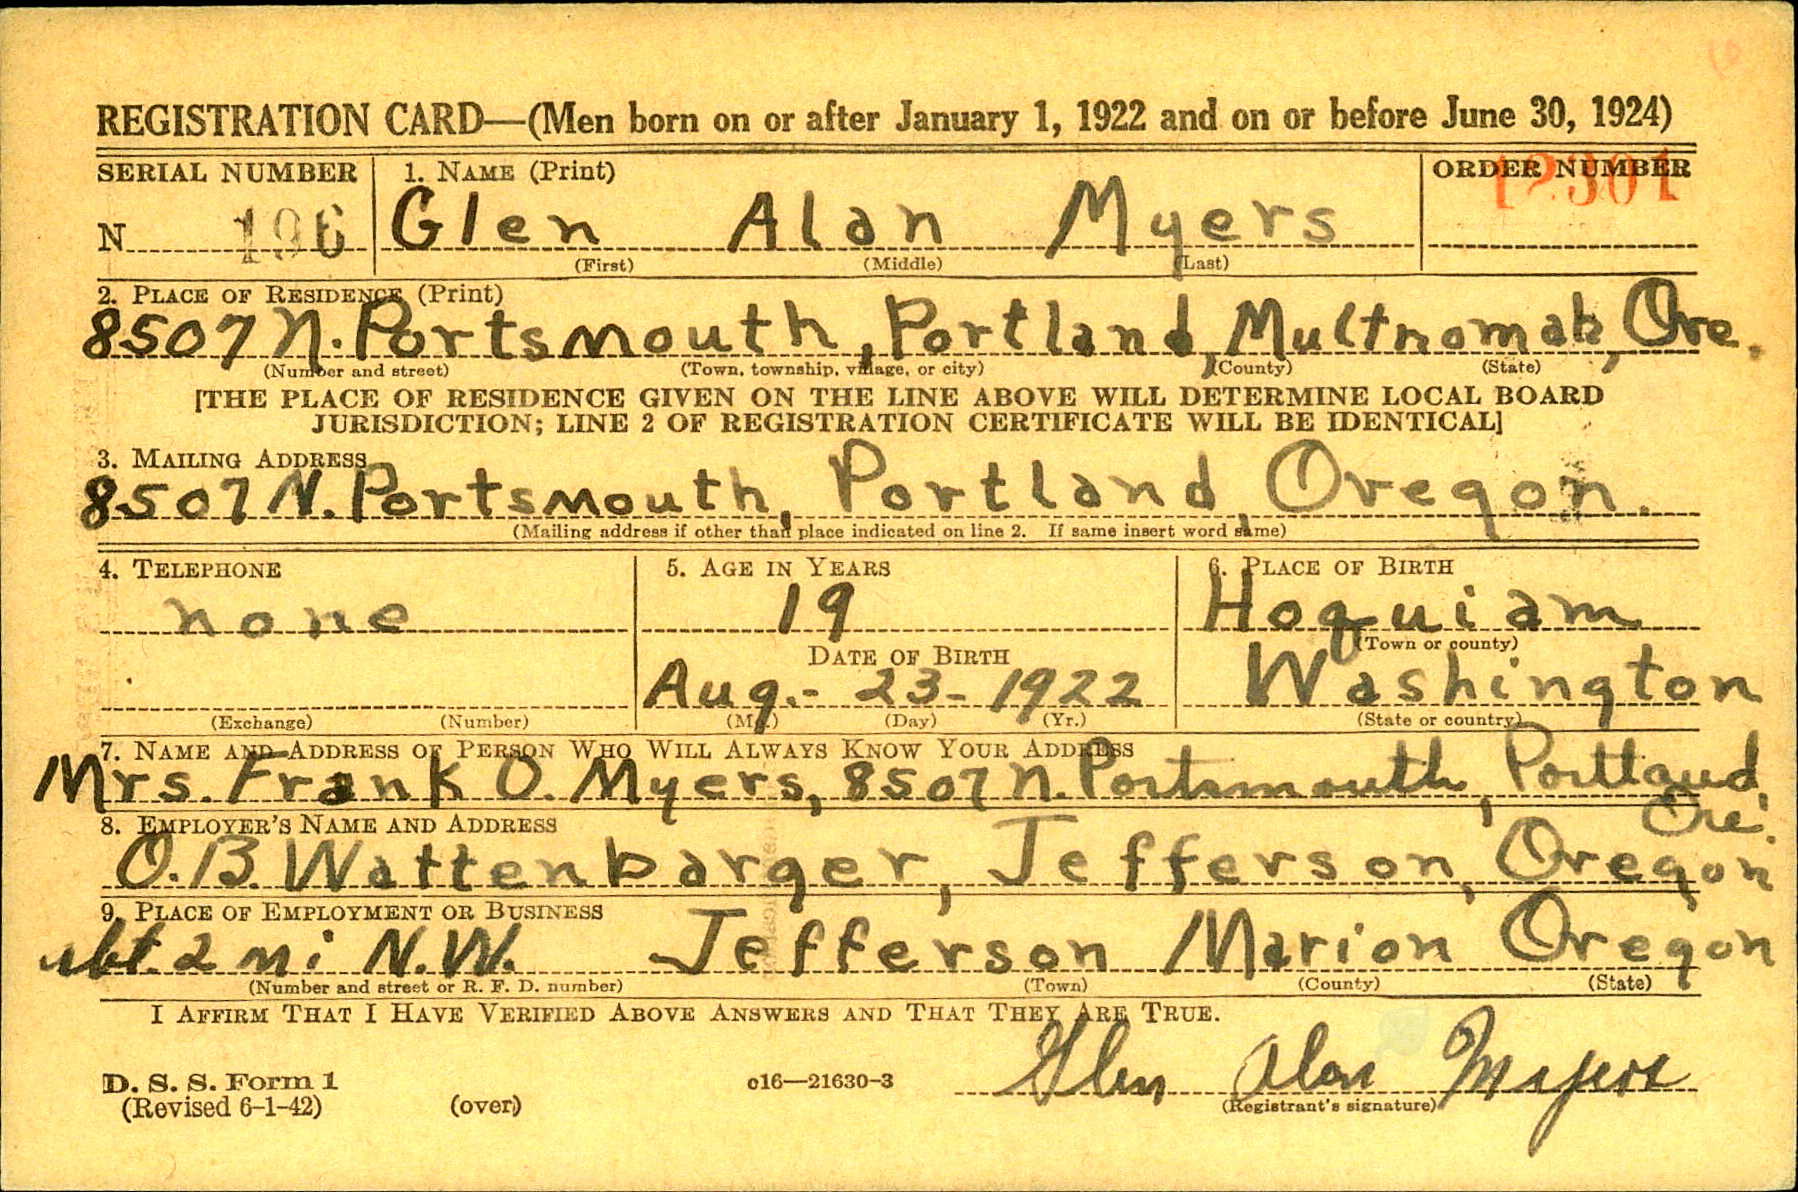 REGISTRATION CARD—(Men born on or after January 1, 1922 and on or before June 30, 1924)
SERIAL NUMBER 1. NAME (Print) ORDER NUMBER
N 196 Glen Alan Myers 12301
(First) (Middle) (Last)
2. PLACE OF RESIDENCE (Print)
8507 N. Portsmouth, Portland, Multnomah, Ore.
(Number and street) (Town, township, village, or city) (County) (State)
[THE PLACE OF RESIDENCE GIVEN ON THE LINE ABOVE WILL DETERMINE LOCAL BOARD
JURISDICTION; LINE 2 OF REGISTRATION CERTIFICATE WILL BE IDENTICAL]
3. MAILING ADDRESS
8507 N. Portsmouth, Portland, Oregon.
(Mailing address if other than place indicated on line 2. If same insert word same)
4. TELEPHONE 5. AGE IN YEARS 6. PLACE OF BIRTH
none 19 Hoquiam
(Town or county)
DATE OF BIRTH
Aug.- 23- 1922 Washington
(Exchange) (Number) (Mo.) (Day) (Yr.) (State or country)
7. NAME AND ADDRESS OF PERSON WHO WILL ALWAYS KNOW YOUR ADDRESS
Mrs. Frank O. Myers, 8507 N. Portsmouth, Portland,
Ore.
8. EMPLOYER'S NAME AND ADDRESS
O.B. Wattenbarger, Jefferson, Oregon
9. PLACE OF EMPLOYMENT OR BUSINESS
abt. 2 mi N.W. Jefferson Marion Oregon
(Number and street or R. F. D. number) (Town) (County) (State)
I AFFIRM THAT I HAVE VERIFIED ABOVE ANSWERS AND THAT THEY ARE TRUE.
Glen Alan Myers
D. S. S. Form 1 c16—21630-3
(Revised 6-1-42) (over) (Registrant's signature)